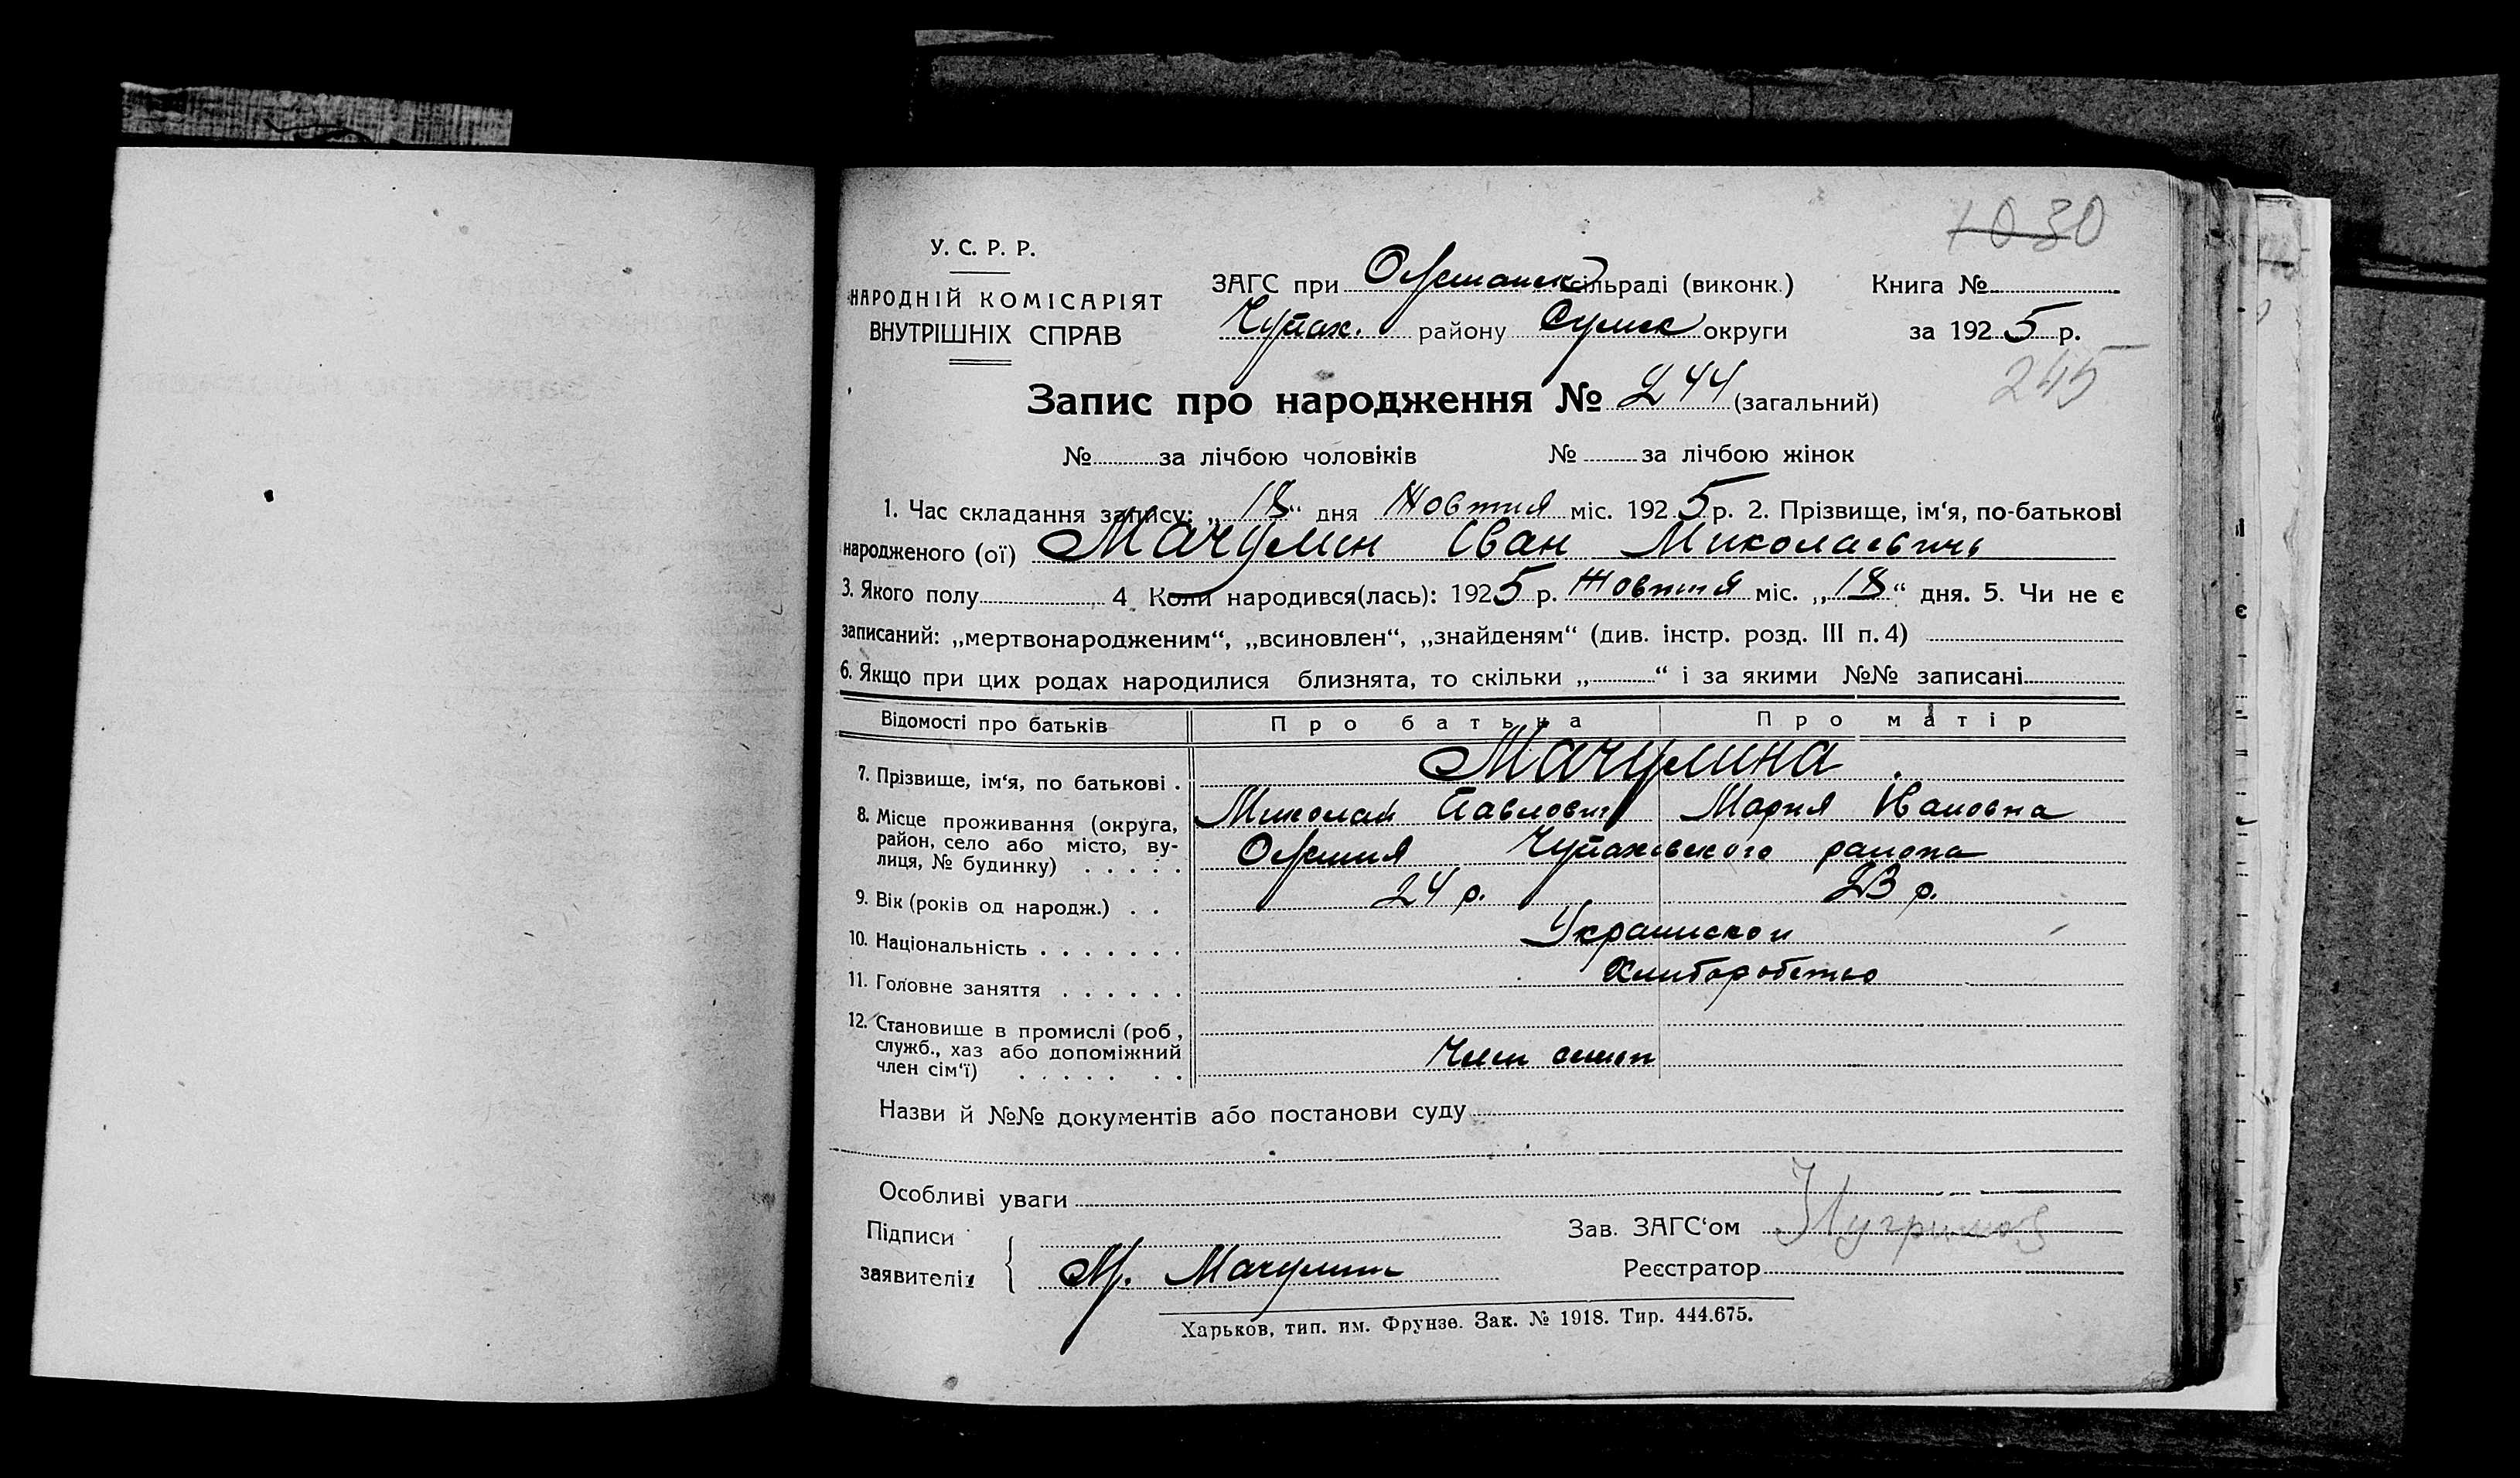 1030
У. С. Р. Р.
НАРОДНІЙ КОМІСАРІЯТ
ВНУТРІШНІХ СПРАВ
ЗАГС при сільраді (виконк.)
Чупах. району Сумск округи
Книга №
за 1925 р.
245
Запис про народження № 244 (загальний)
№ за лічбою чоловіків № за лічбою жінок
1. Час складання запису: „18“ дня Жовтня міс. 1925 р. 2. Прізвище, ім‘я, по-батькові
народженого (ої) Мачулин Іван Миколаевичь
3. Якого полу 4. Коли народився(лась): 1925 р. Жовтня міс. „18“ дня. 5. Чи не є
записаний: „мертвонародженим“, „всиновлен“, „знайденям“ (див. інстр. розд. III п. 4)
6. Якщо при цих родах народилися близнята, то скільки „ “ і за якими №№ записані
Відомості про батьків Про батька Про матір
7. Прізвище, ім‘я, по батькові . Мачулина
Миколай Павлович Мария Ивановна
8. Місце проживання (округа,
район, село або місто, ву-
лиця, № будинку) . . . . . Чупаховского района
9. Вік (років од народж.) . . 24 р. 23 р.
10. Національність . . . . . . .
11. Головне заняття . . . . . .
12. Становище в промислі (роб.,
служб., хаз або допоміжний
член сім‘ї) . . . . . . . Член
Назви й №№ документів або постанови суду
Особливі уваги
Підписи
заявителів М. Мачулин
Зав. ЗАГС‘ом
Реєстратор
Харьков, тип. им. Фрунзе. Зак. № 1918. Тир. 444.675.